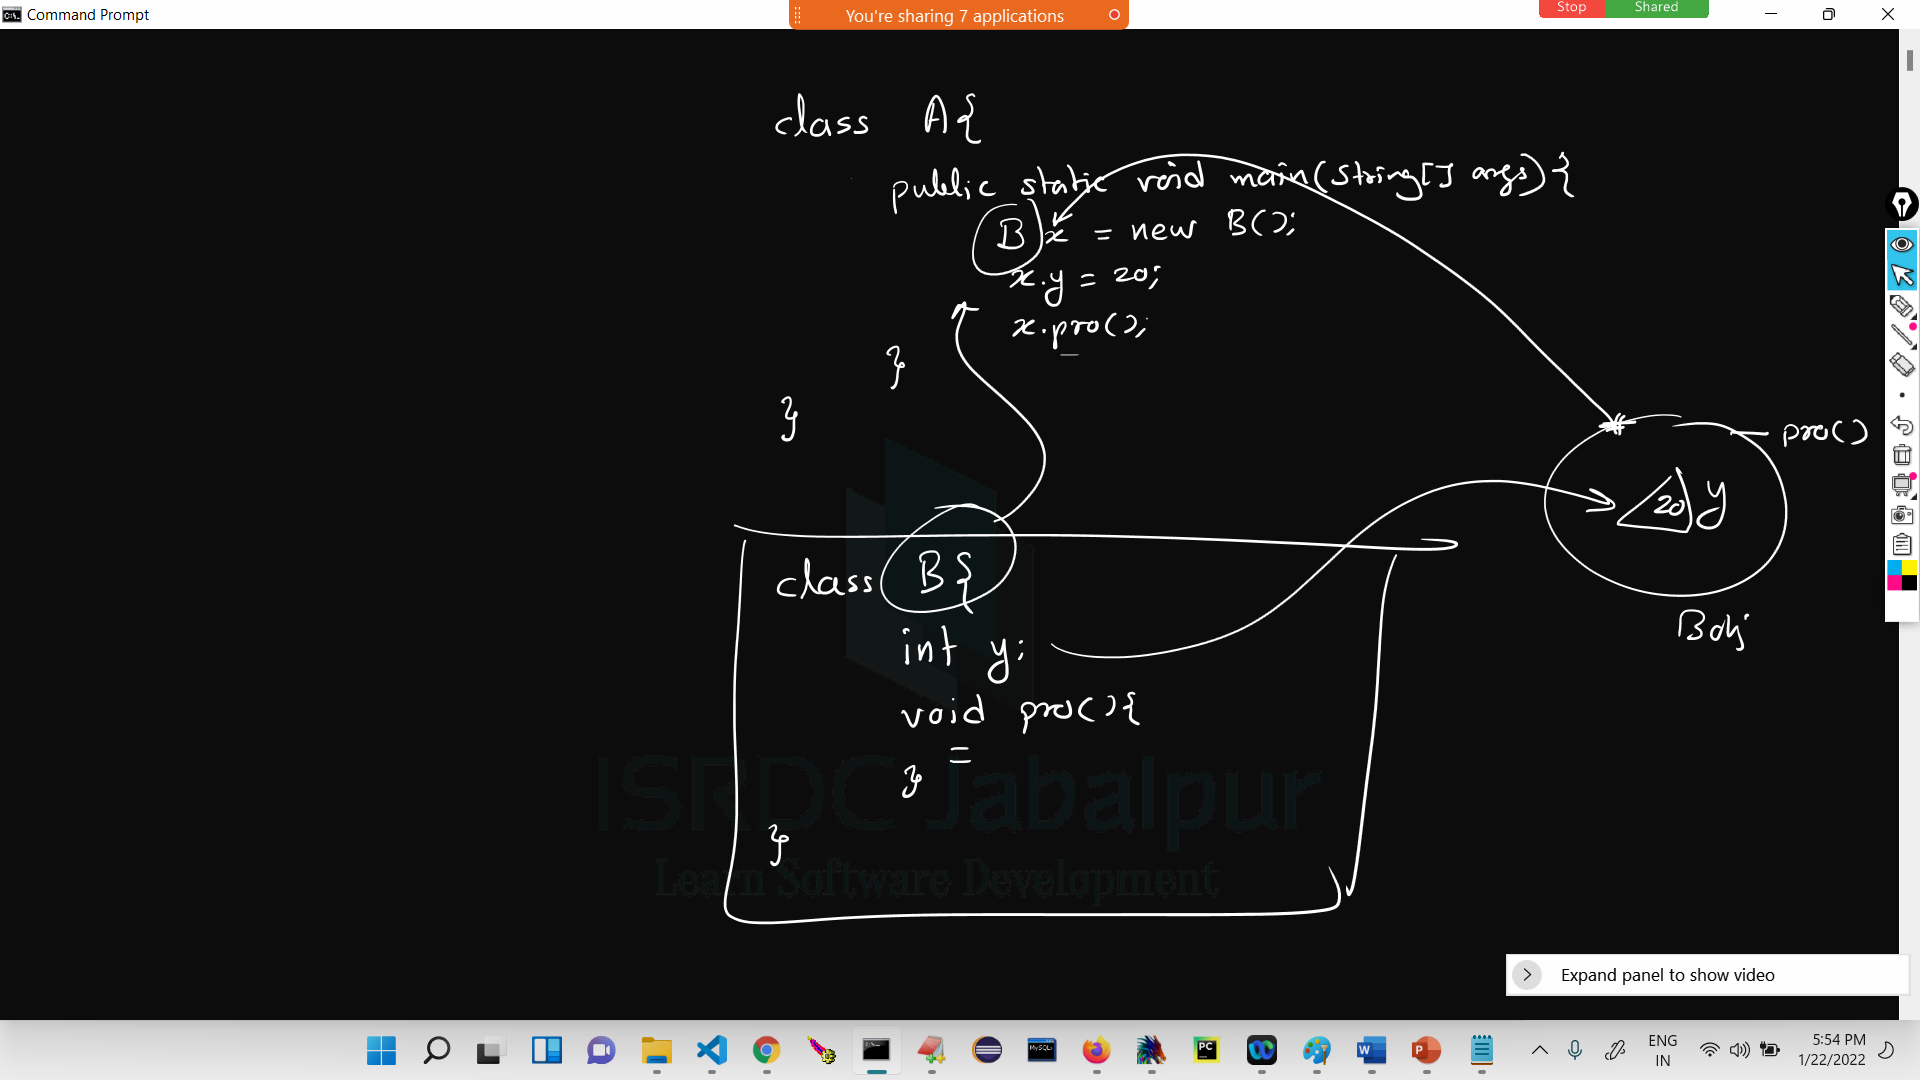 Command Prompt
You're sharing 7 applications
Stop Shared
class A{
public static void main(String[] args){
B x = new B();
x.y = 20;
x.pro();
}
}
pro()
20 y
B obj
class B{
int y;
void pro(){
=
}
}
ISRDC Jabalpur
Learn Software Development
Expand panel to show video
MySQL
PC
W
P
ENG
IN
5:54 PM
1/22/2022